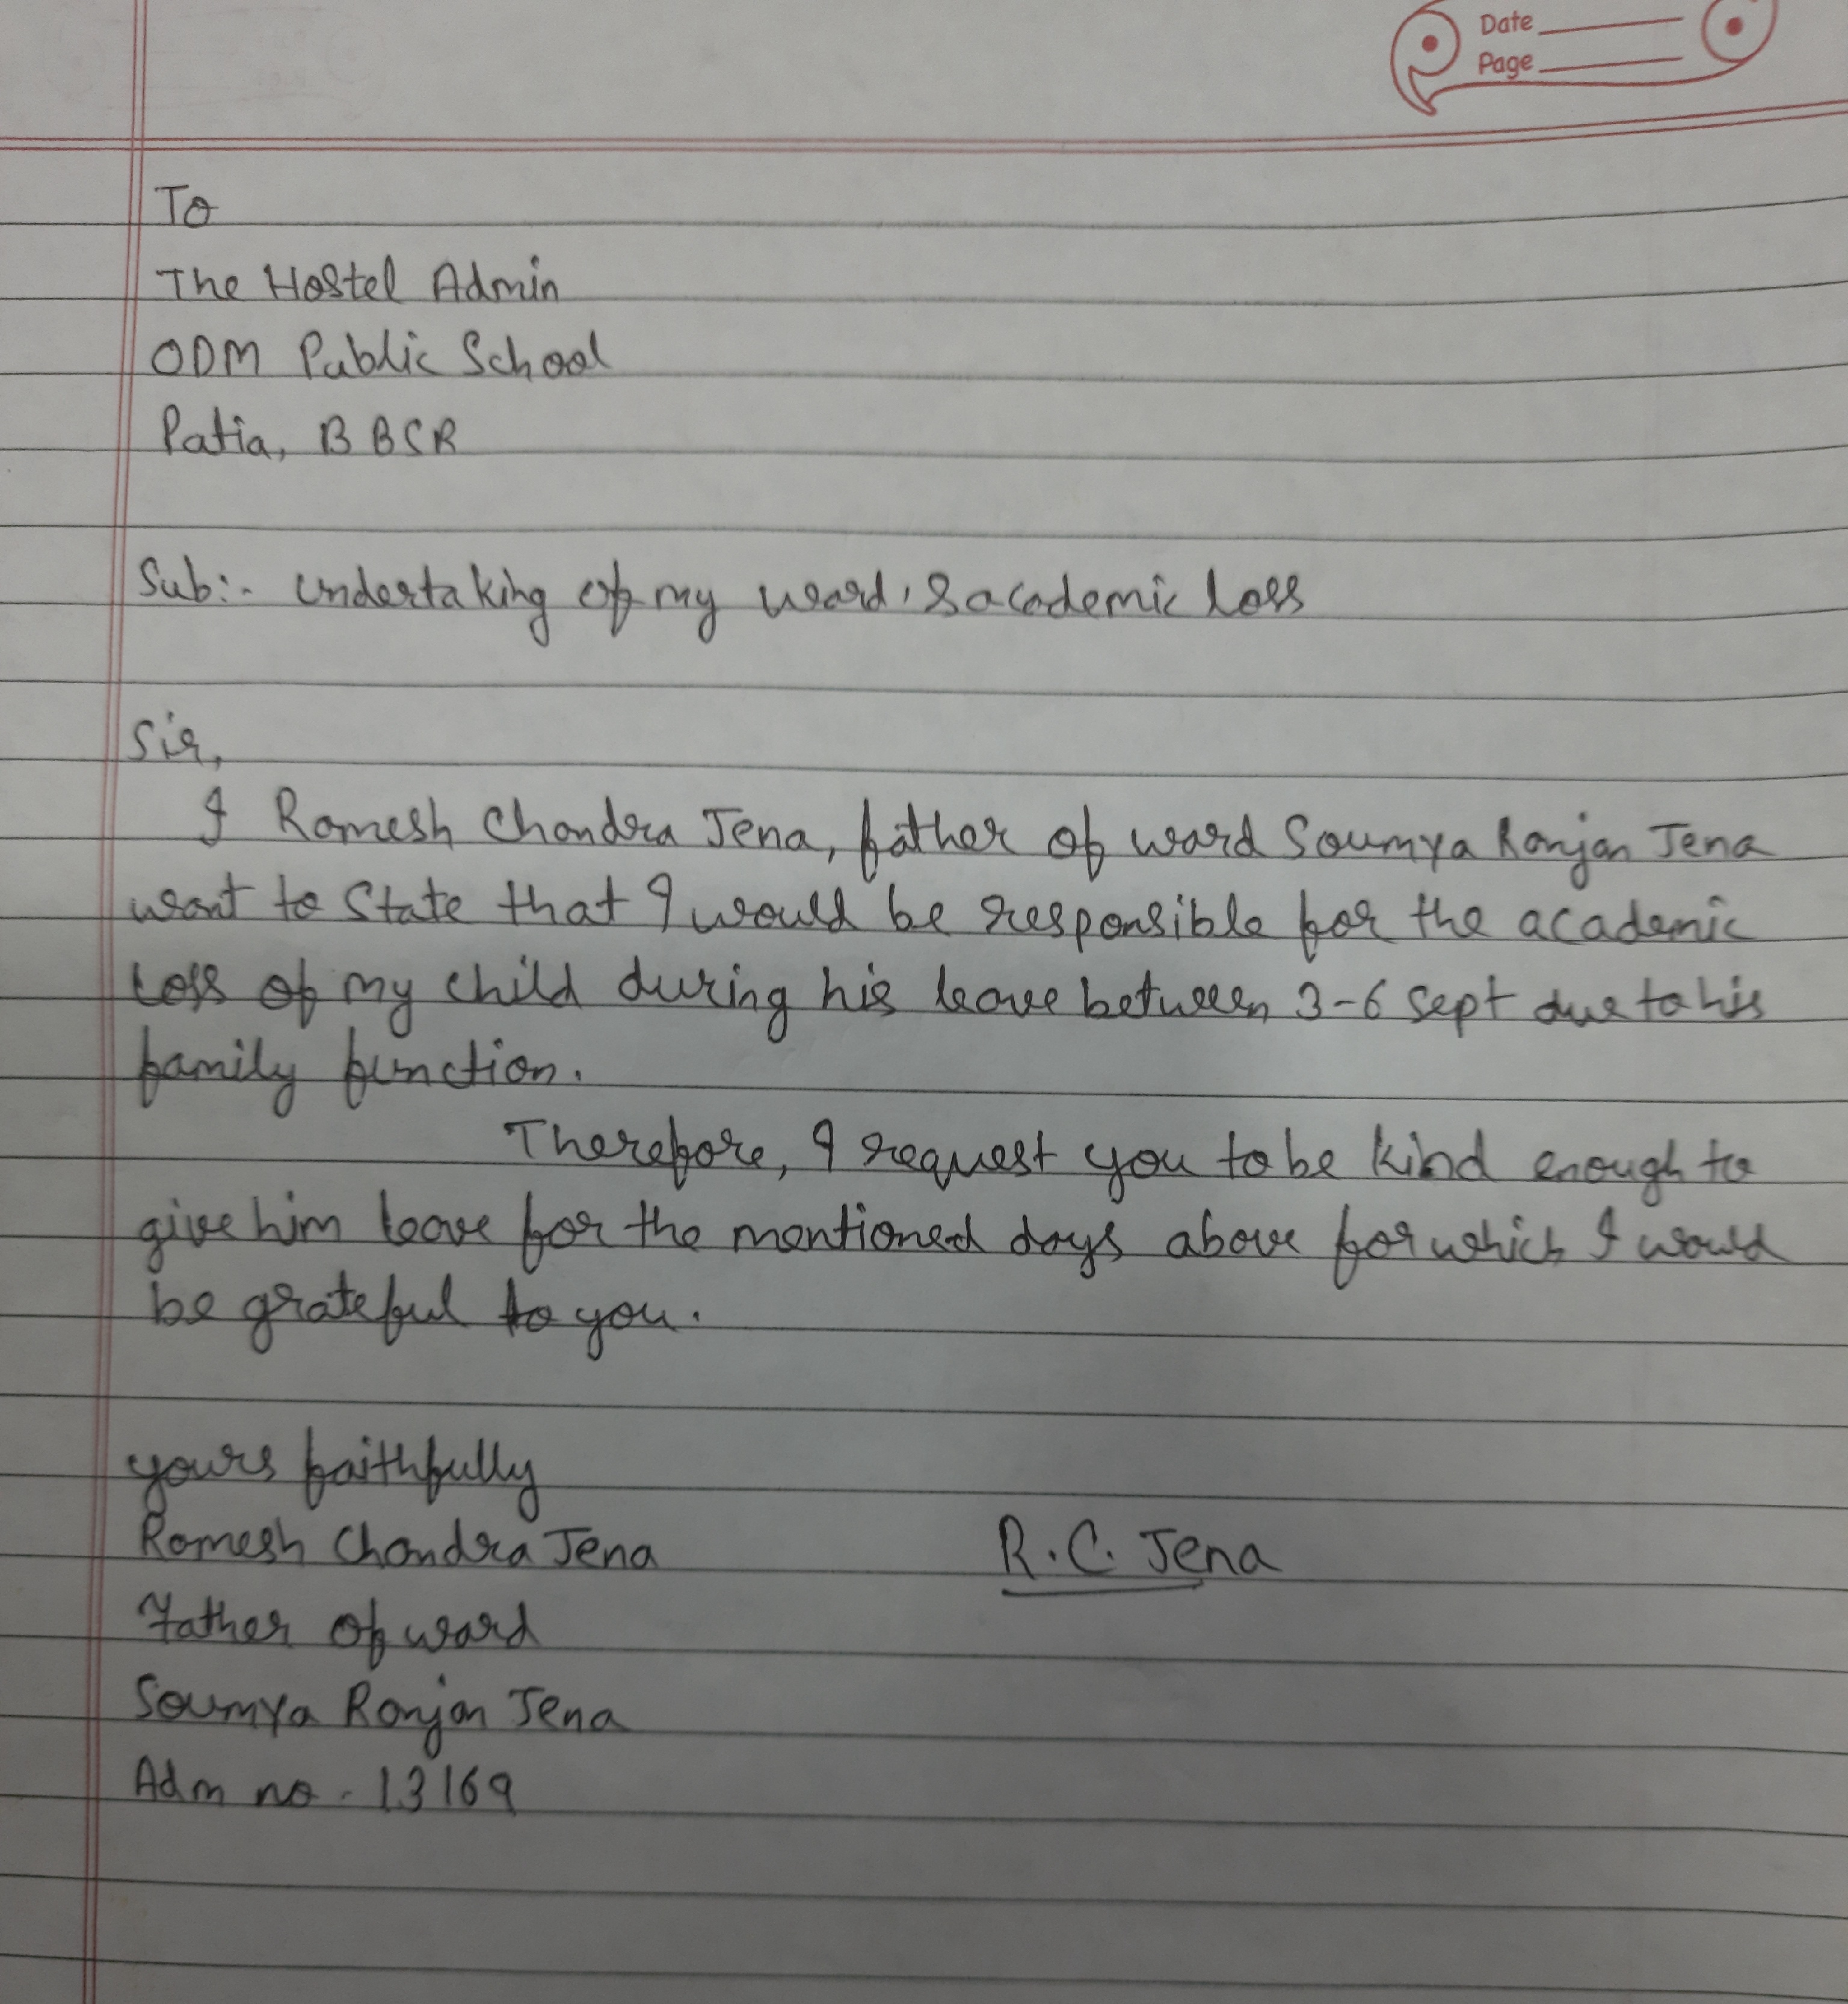 Date
Page
To
The Hostel Admin
ODM Public School
Patia, BBSR
Sub:- Undertaking of my ward's academic loss
Sir,
I Ramesh Chandra Jena, father of ward Soumya Ranjan Jena
want to state that I would be responsible for the academic
loss of my child during his leave between 3-6 Sept due to his
family function.
Therefore, I request you to be kind enough to
give him leave for the mentioned days above for which I would
be grateful to you.
yours faithfully
Ramesh Chandra Jena R.C. Jena
Father of ward
Soumya Ranjan Jena
Adm no - 13169